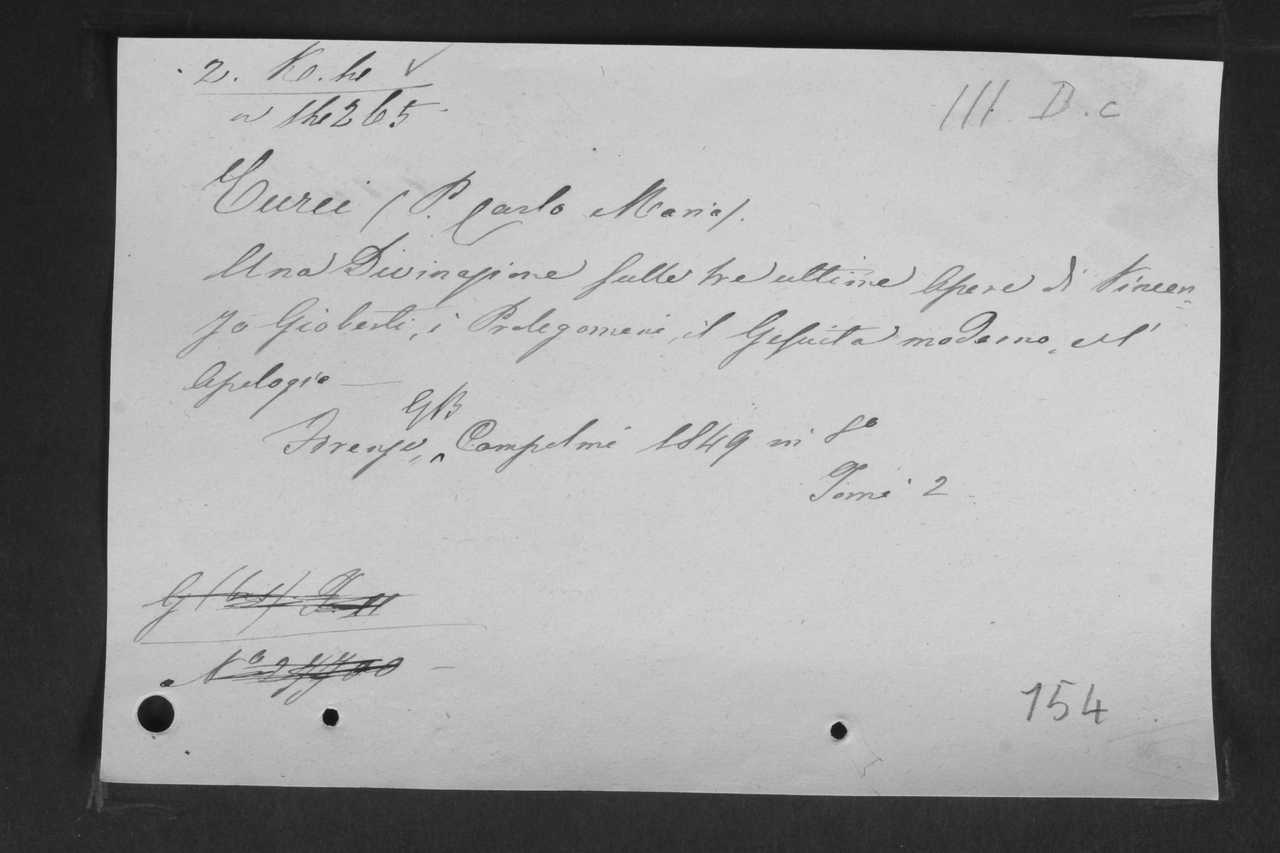 2. Ke. he
III. D. c
265
Curci (P. Carlo Maria).
Una Divinazione sulle tre ultime Opere di Vincen-
zo Gioberti, i Prolegomeni, il Gesuita moderno, e l'
Apologia —
GB
Firenze, Campolmi 1849 in 8º
Tomi 2
154